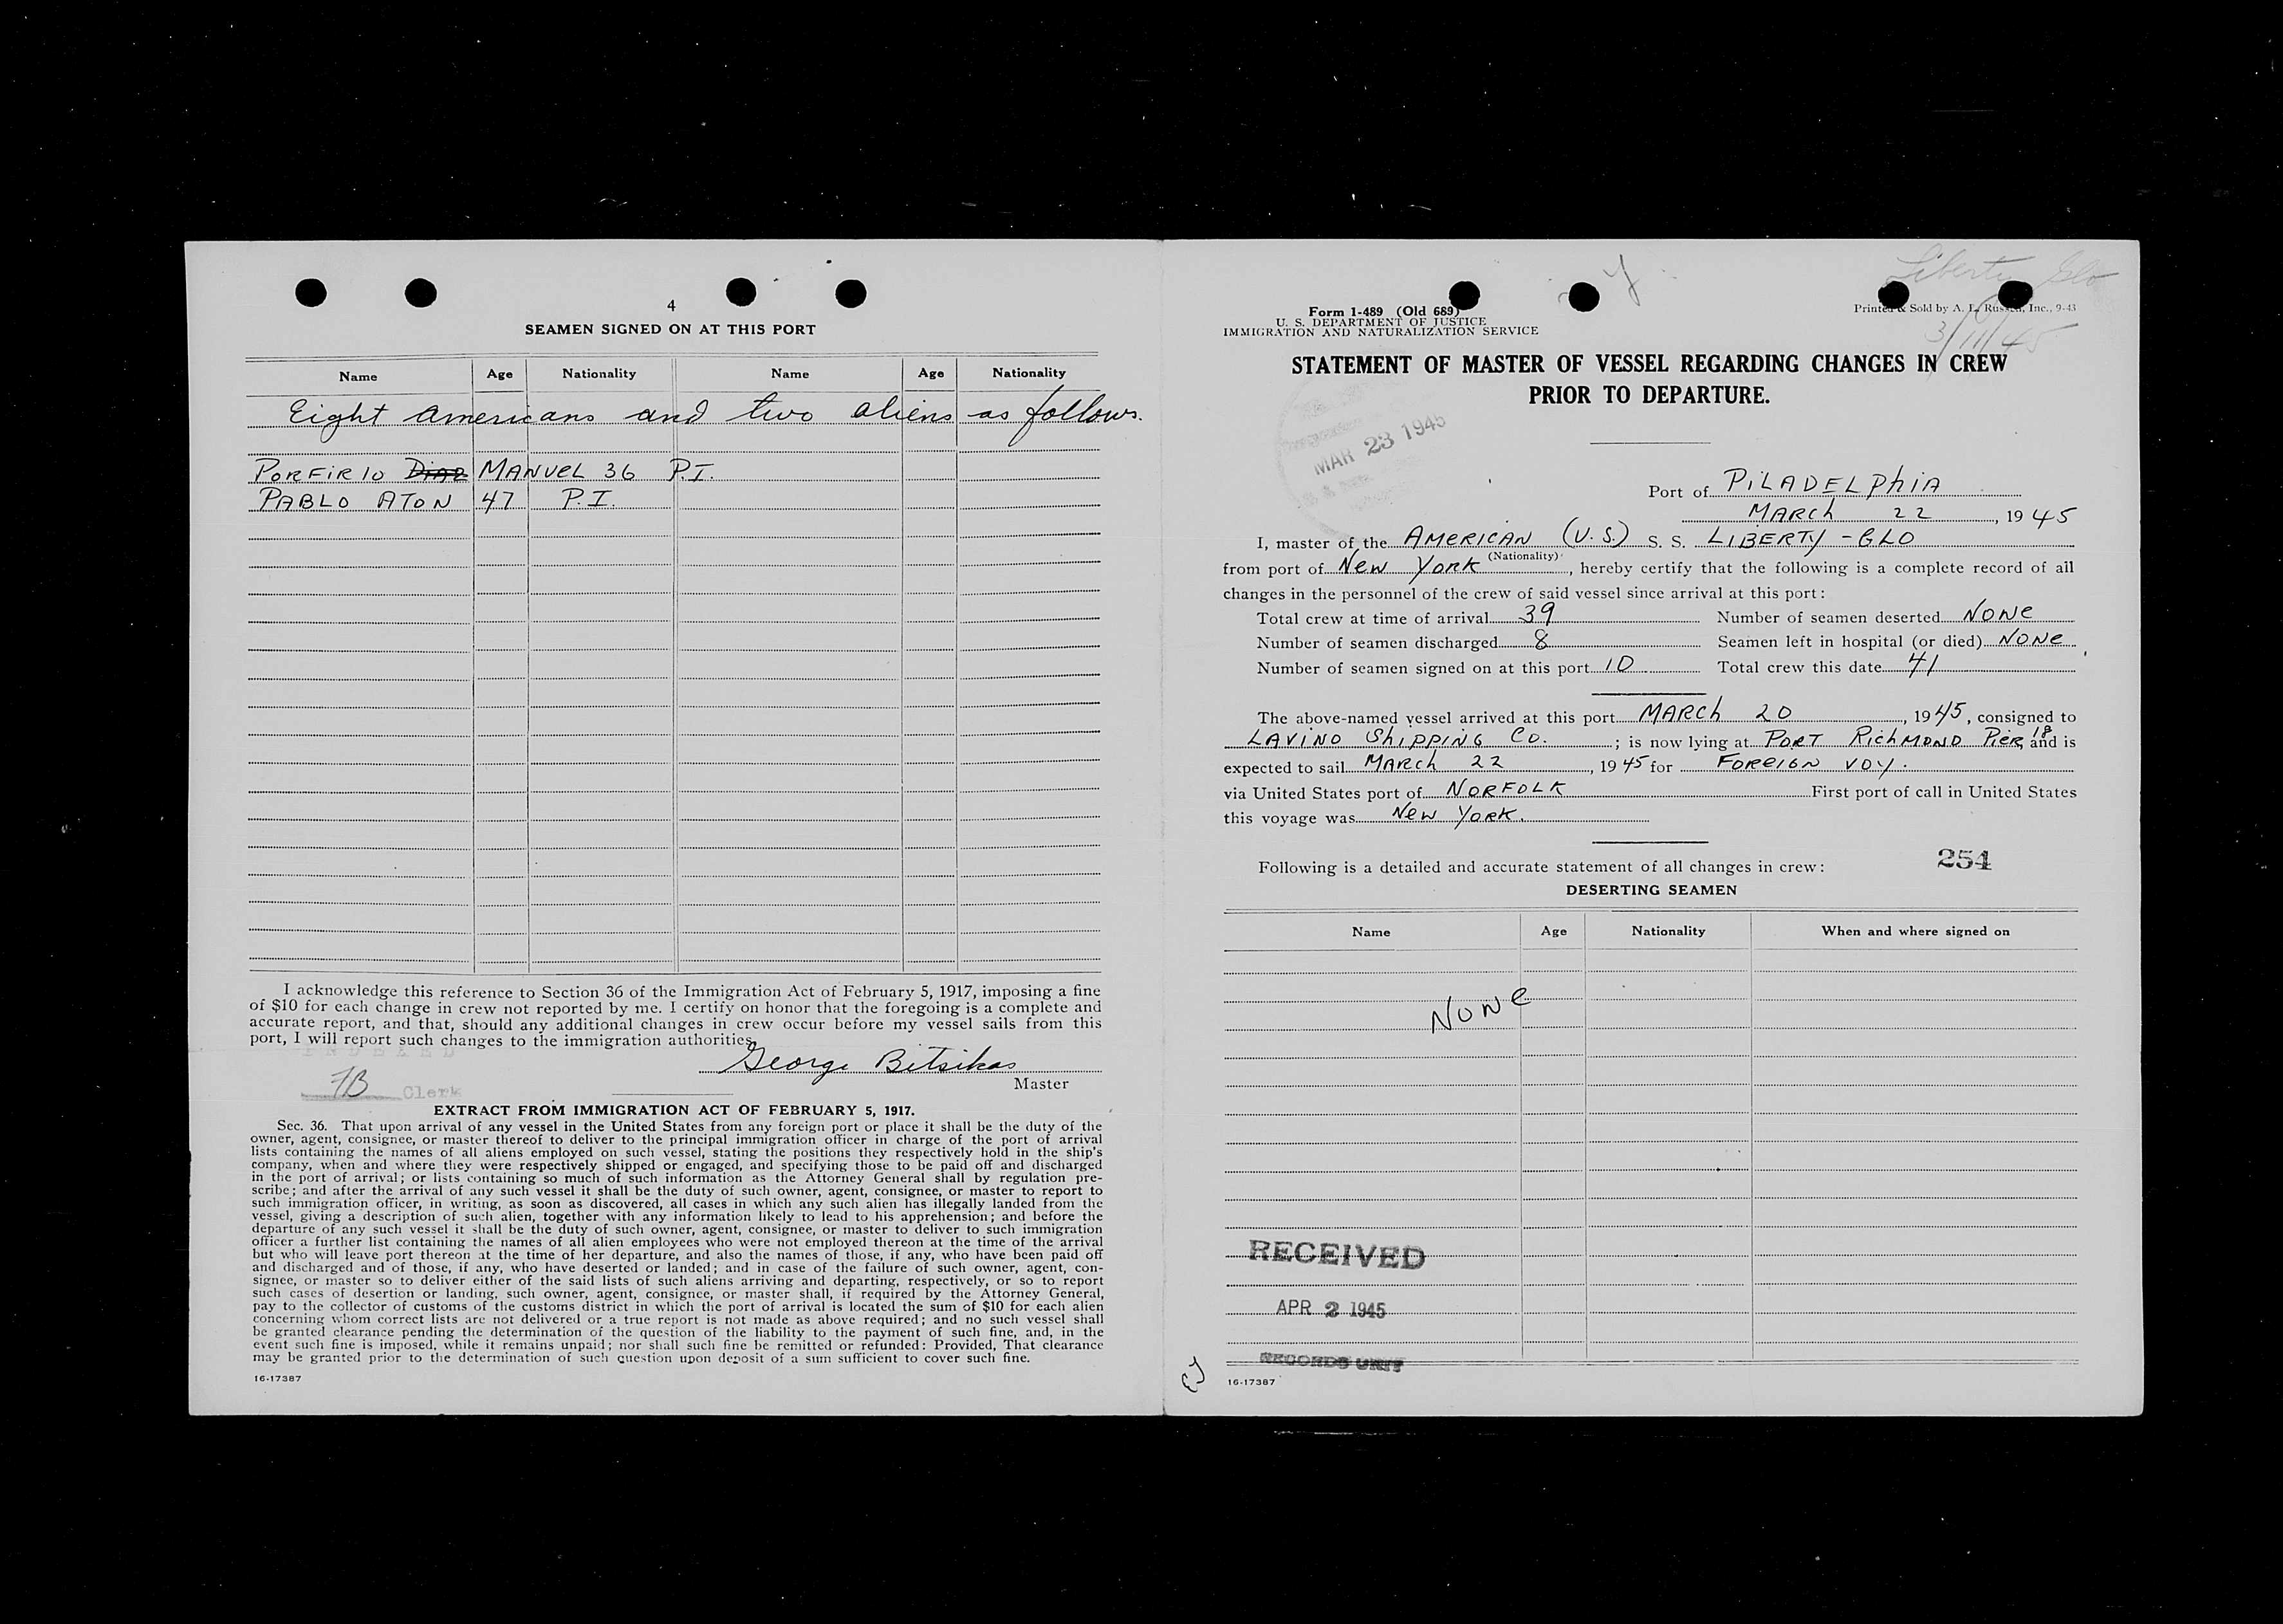 4
SEAMEN SIGNED ON AT THIS PORT
Name Age Nationality Name Age Nationality
Eight Americans and two aliens as follows.
PORFIRIO DIAR MANUEL 36 P.I.
PABLO ATON 47 P.I.
I acknowledge this reference to Section 36 of the Immigration Act of February 5, 1917, imposing a fine
of $10 for each change in crew not reported by me. I certify on honor that the foregoing is a complete and
accurate report, and that, should any additional changes in crew occur before my vessel sails from this
port, I will report such changes to the immigration authorities.
George Bitsikas
Master
JB Clerk
EXTRACT FROM IMMIGRATION ACT OF FEBRUARY 5, 1917.
Sec. 36. That upon arrival of any vessel in the United States from any foreign port or place it shall be the duty of the
owner, agent, consignee, or master thereof to deliver to the principal immigration officer in charge of the port of arrival
lists containing the names of all aliens employed on such vessel, stating the positions they respectively hold in the ship's
company, when and where they were respectively shipped or engaged, and specifying those to be paid off and discharged
in the port of arrival; or lists containing so much of such information as the Attorney General shall by regulation pre-
scribe; and after the arrival of any such vessel it shall be the duty of such owner, agent, consignee, or master to report to
such immigration officer, in writing, as soon as discovered, all cases in which any such alien has illegally landed from the
vessel, giving a description of such alien, together with any information likely to lead to his apprehension; and before the
departure of any such vessel it shall be the duty of such owner, agent, consignee, or master to deliver to such immigration
officer a further list containing the names of all alien employees who were not employed thereon at the time of the arrival
but who will leave port thereon at the time of her departure, and also the names of those, if any, who have been paid off
and discharged and of those, if any, who have deserted or landed; and in case of the failure of such owner, agent, con-
signee, or master so to deliver either of the said lists of such aliens arriving and departing, respectively, or so to report
such cases of desertion or landing, such owner, agent, consignee, or master shall, if required by the Attorney General,
pay to the collector of customs of the customs district in which the port of arrival is located the sum of $10 for each alien
concerning whom correct lists are not delivered or a true report is not made as above required; and no such vessel shall
be granted clearance pending the determination of the question of the liability to the payment of such fine, and, in the
event such fine is imposed, while it remains unpaid; nor shall such fine be remitted or refunded: Provided, That clearance
may be granted prior to the determination of such question upon deposit of a sum sufficient to cover such fine.
16-17387
Liberty Glo
3/11/45
Form I-489 (Old 689)
U. S. DEPARTMENT OF JUSTICE
IMMIGRATION AND NATURALIZATION SERVICE
Printed & Sold by A. L. Russell, Inc., 9-43
STATEMENT OF MASTER OF VESSEL REGARDING CHANGES IN CREW
PRIOR TO DEPARTURE.
MAR 23 1945
Port of PILADELPHIA
MARCH 22, 1945
I, master of the AMERICAN (U.S.) S. S. LIBERTY-GLO
(Nationality)
from port of NEW YORK, hereby certify that the following is a complete record of all
changes in the personnel of the crew of said vessel since arrival at this port:
Total crew at time of arrival 39 Number of seamen deserted NONE
Number of seamen discharged 8 Seamen left in hospital (or died) NONE
Number of seamen signed on at this port 10 Total crew this date 41
The above-named vessel arrived at this port MARCH 20, 1945, consigned to
LAVINO SHIPPING CO.; is now lying at PORT RICHMOND PIER 18, and is
expected to sail MARCH 22, 1945 for FOREIGN VOY.
via United States port of NORFOLK First port of call in United States
this voyage was NEW YORK.
Following is a detailed and accurate statement of all changes in crew:
254
DESERTING SEAMEN
Name Age Nationality When and where signed on
NONE
RECEIVED
APR 2 1945
RECORDS UNIT
16-17387